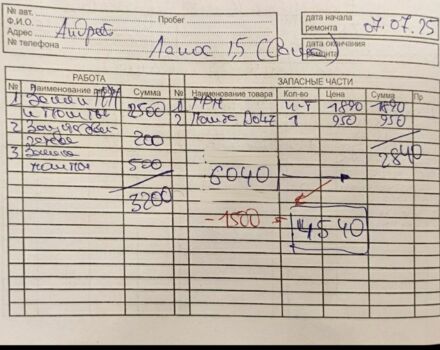 № авт. Пробег
Ф.И.О. Андрей
Адрес
№ телефона Ланос 1,5 (Сенс)
дата начала ремонта 7.07.25
дата окончания ремонта
РАБОТА ЗАПАСНЫЕ ЧАСТИ
№ Наименование Сумма № Наименование товара Кол-во Цена Сумма Пр
1 Замена ГРМ 1 ГРМ к-т 1890 1890
и помпы 2500 2 Помпа 1 950 950
2
200 2840
3 Замена
500 6040
3200
- 1500 = 4540